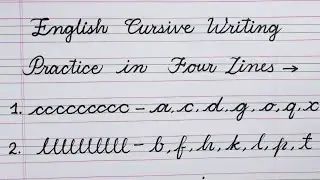 English Cursive Writing
Practice in Four Lines →
1. ccccccccc – a, c, d, g, o, q, x
2. lllllllll – b, f, h, k, l, p, t